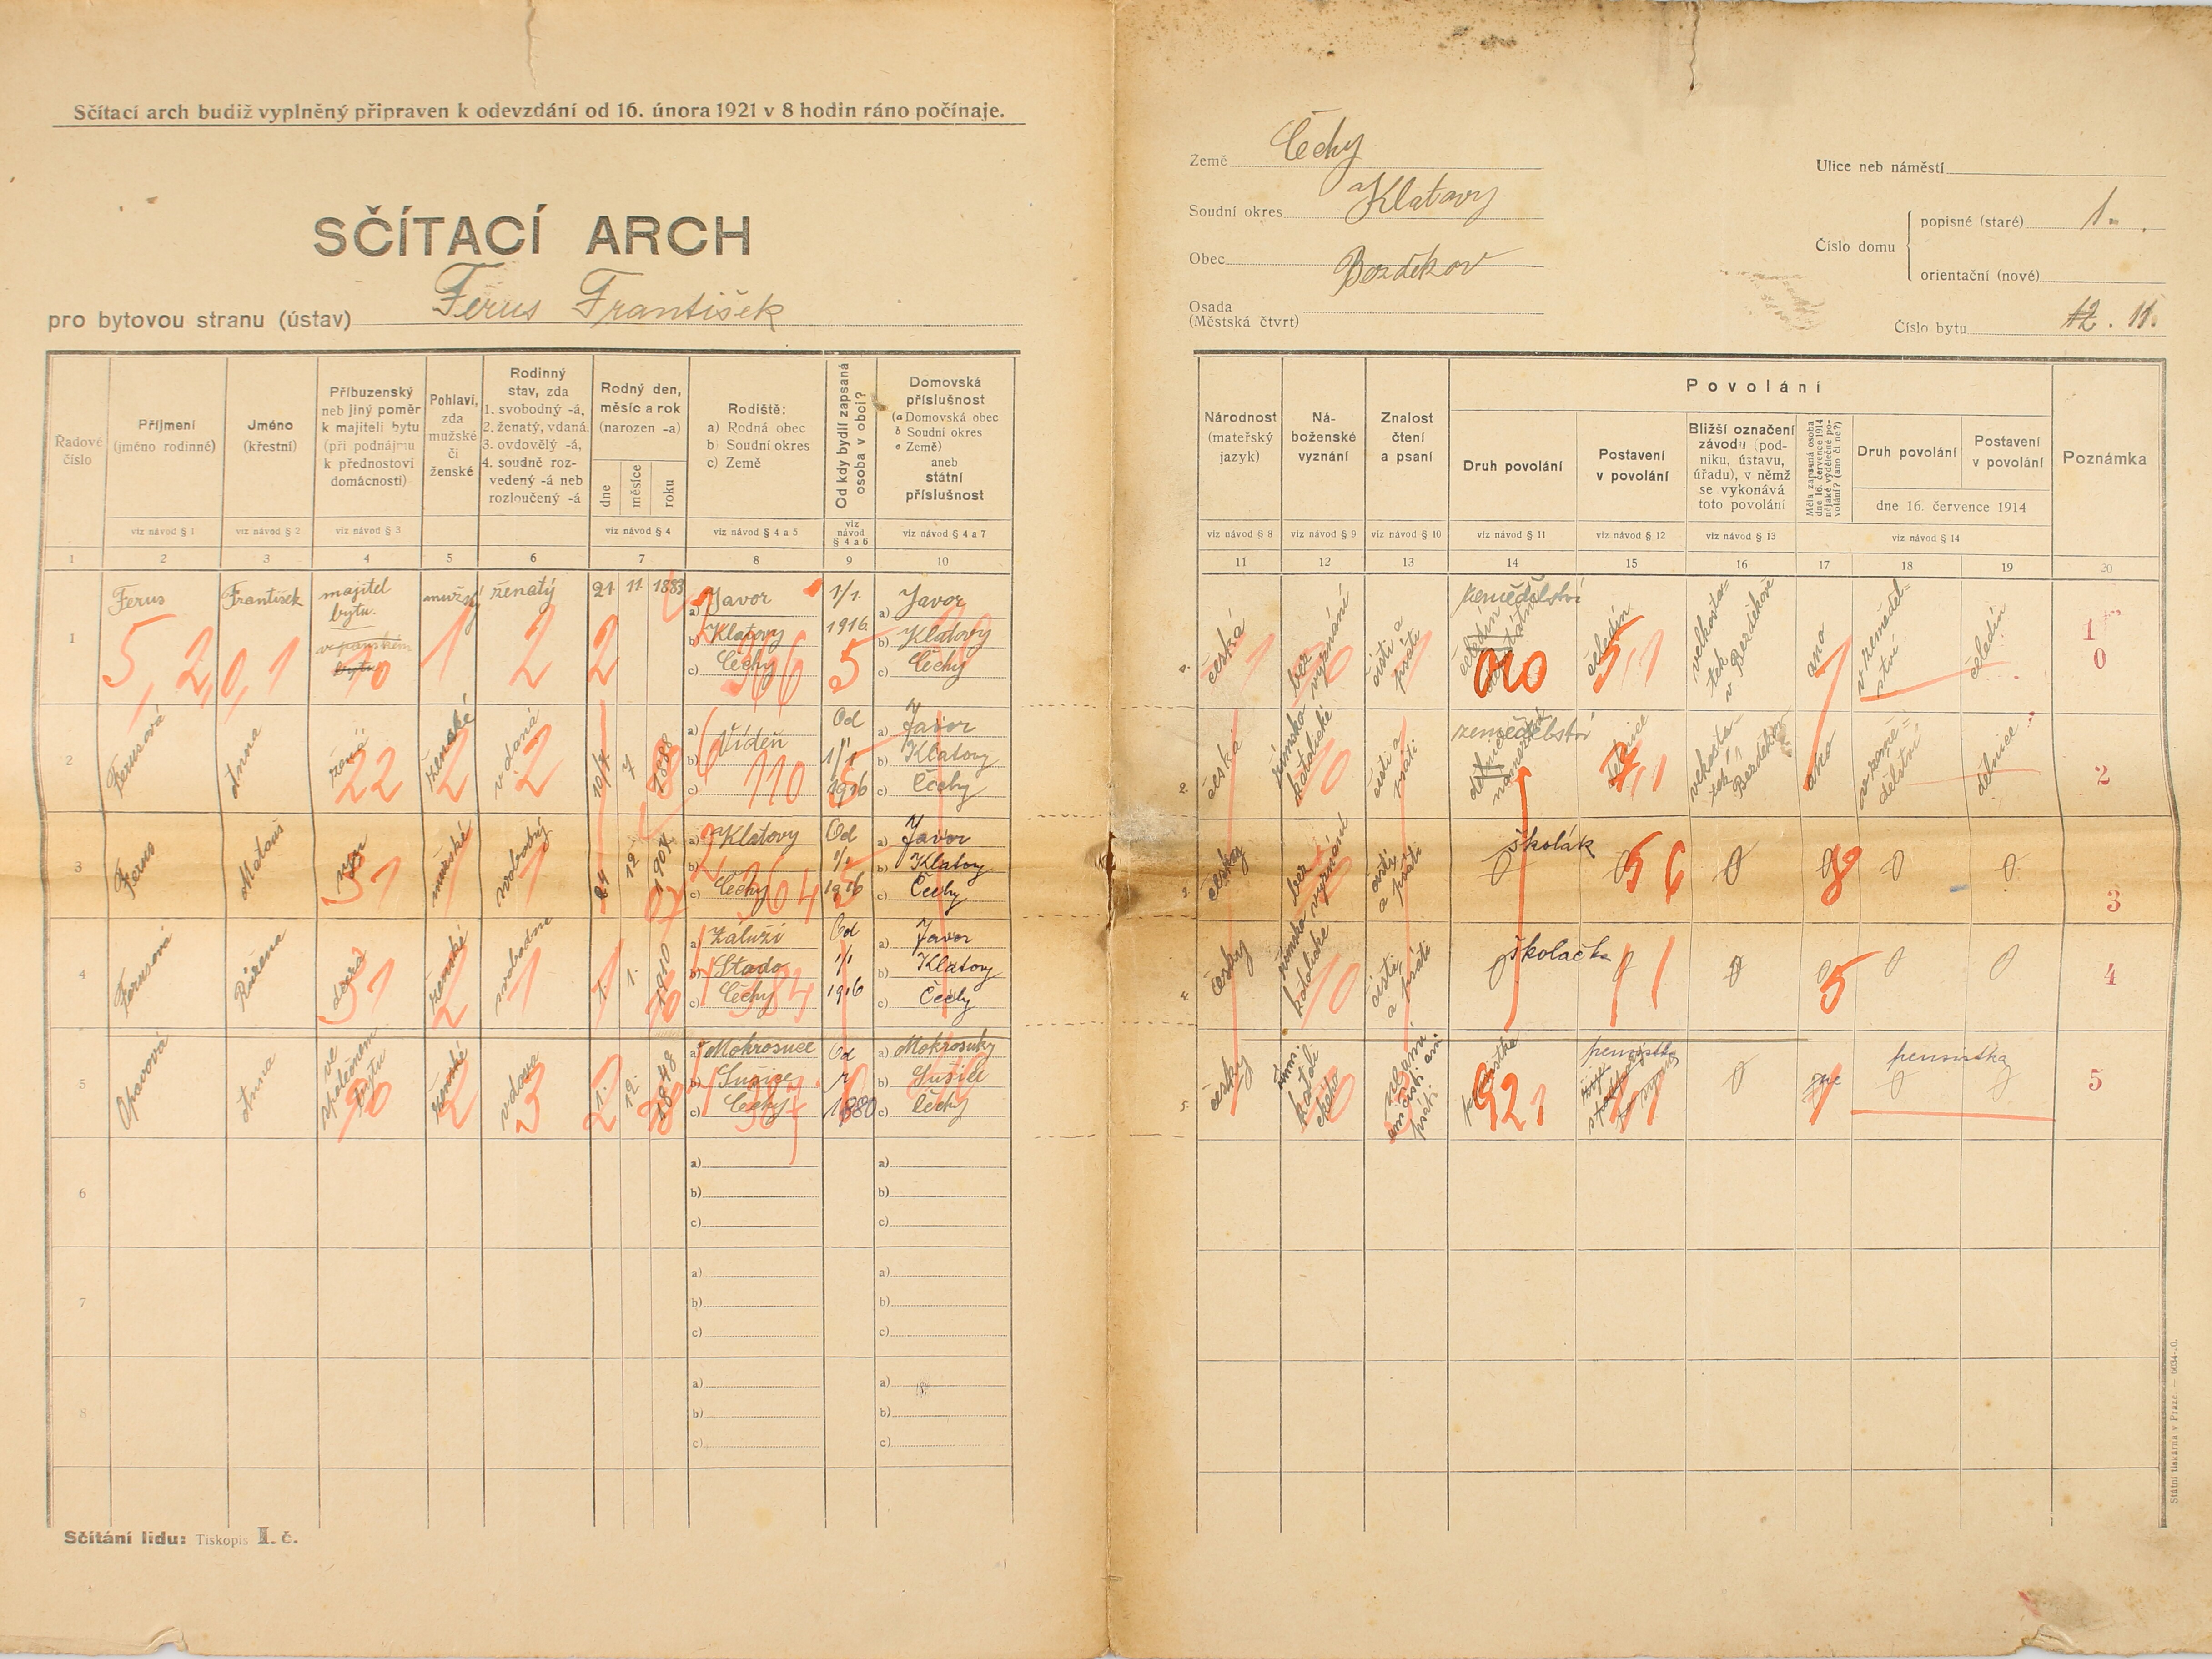 Sčítací arch budiž vyplněný připraven k odevzdání od 16. února 1921 v 8 hodin ráno počínaje.
SČÍTACÍ ARCH
pro bytovou stranu (ústav) Ferus František
Země Čechy
Soudní okres Klatovy
Obec Bezděkov
Osada
(Městská čtvrt)
Ulice neb náměstí
Číslo domu
popisné (staré) 1.
orientační (nové)
Číslo bytu 12. 11.
Řadové číslo
Příjmení (jméno rodinné)
Jméno (křestní)
Příbuzenský neb jiný poměr k majiteli bytu (při podnájmu k přednostovi domácnosti)
Pohlaví, zda mužské či ženské
Rodinný stav, zda 1. svobodný -á, 2. ženatý, vdaná, 3. ovdovělý -á, 4. soudně rozvedený -á neb rozloučený -á
Rodný den, měsíc a rok (narozen -a)
dne měsíce roku
Rodiště: a) Rodná obec b) Soudní okres c) Země
Od kdy bydlí zapsaná osoba v obci?
Domovská příslušnost (a Domovská obec b Soudní okres c Země) aneb státní příslušnost
viz návod § 1 viz návod § 2 viz návod § 3 viz návod § 4 viz návod § 4 a 5 viz návod § 4 a 6 viz návod § 4 a 7
1 2 3 4 5 6 7 8 9 10
Národnost (mateřský jazyk)
Náboženské vyznání
Znalost čtení a psaní
Povolání
Druh povolání
Postavení v povolání
Bližší označení závodu (podniku, ústavu, úřadu), v němž se vykonává toto povolání
Měla zapsaná osoba dne 16. července 1914 nějaké výdělečné povolání? (ano či ne?)
Druh povolání
Postavení v povolání
dne 16. července 1914
Poznámka
viz návod § 8 viz návod § 9 viz návod § 10 viz návod § 11 viz návod § 12 viz návod § 13 viz návod § 14
11 12 13 14 15 16 17 18 19 20
1 Ferus František majitel bytu. mužský ženatý 21 11 1883 a) Javor b) Klatovy c) Čechy 1/1 1916 a) Javor b) Klatovy c) Čechy
česká bez vyznání čísti a psáti zemědělství čeledín velkostatek v Bezděkově ano v zemědělství čeledín 1 0
2 Ferusová Anna žena ženské vdaná 10/7 7 1888 a) Vídeň b) c) Od 1/1 1916 a) Javor b) Klatovy c) Čechy
česká římsko katolické čísti a psáti zemědělství ano dělnice 2
3 Ferus Matouš syn mužské svobodný 12 1907 a) Klatovy b) c) Čechy Od 1/1 1916 a) Javor b) Klatovy c) Čechy
česky bez vyznání a psáti 0 školák 0 0 0 0 0 3
4 Ferusová Růžena dcera ženské svobodna 1. 1. 1910 a) Záluží b) Stado c) Čechy Od 1/1 1916 a) Javor b) Klatovy c) Čechy
česky římsko katolické čísti a psáti 0 školačka 0 0 0 0 0 4
5 Opavová Anna ve společném bytu ženské vdova 1. 12. 1848 a) Mokrosuce b) Sušice c) Čechy Od r 1880 a) Mokrosuky b) Sušice c) Čechy
česky neumí ani čísti ani psáti pensistka 0 ne pensistka 0 0 5
6 a) b) c) a) b) c)
7 a) b) c) a) b) c)
8 a) b) c) a) b) c)
a) b) c) a) b) c)
Sčítání lidu: Tiskopis I. č.
Státní tiskárna v Praze. — 6034-20.